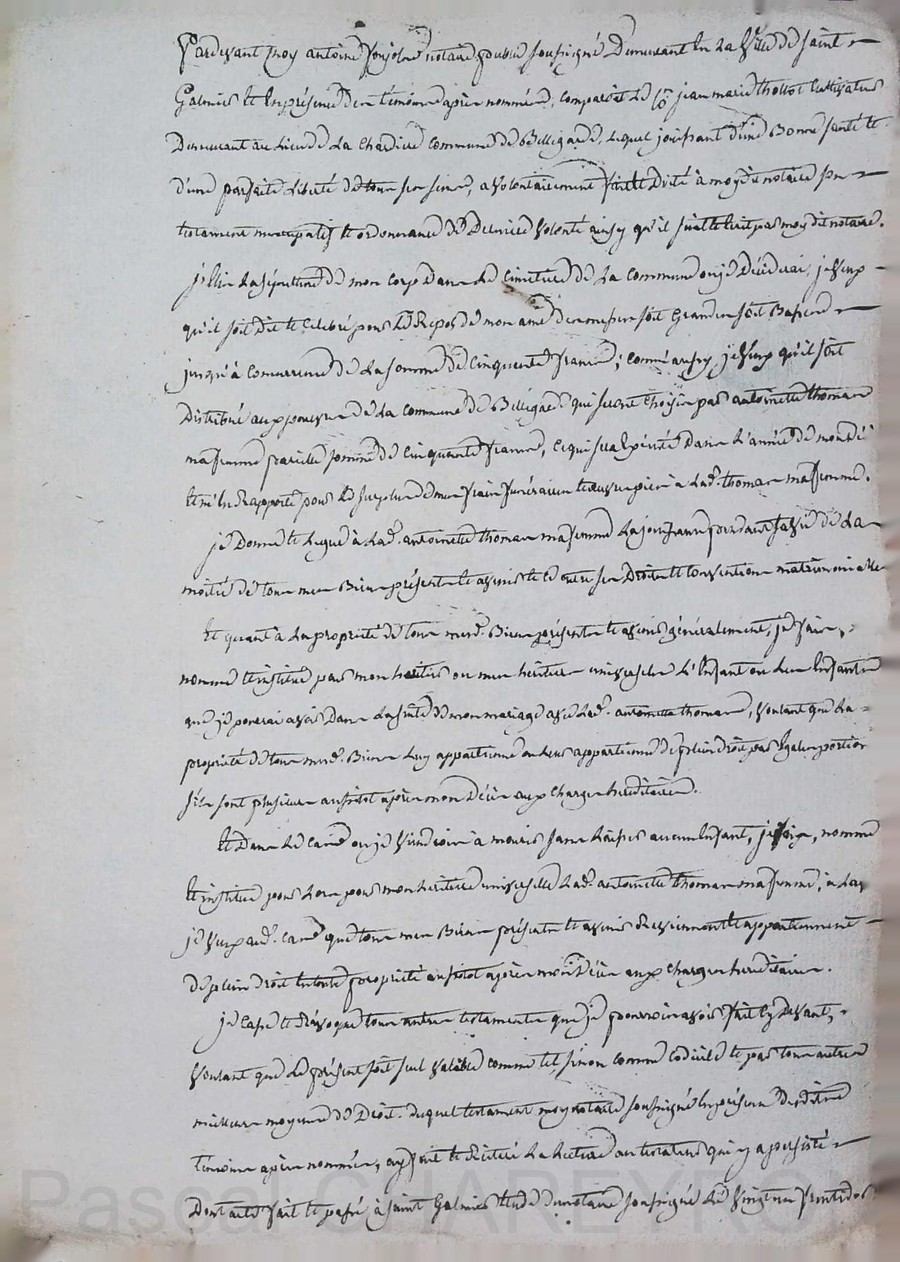 Pardevant moy antoine notaire public soussigné Demeurant en La Ville de Saint
Galmier et En présence des temoins apres nommés, comparoit Le Sr jean marie thollot Cultivateur
Demeurant au Lieu de La Chardiere commune de Bellegarde, Lequel jouissant d'une Bonne santé et
d'une parfaite Liberté de tous ses sens, a volontairement fait et Dicté à moy dit notaire son
testament nuncupatif et ordonnance de Derniere volonté ainsy qu'il suit et Ecrit par moy dit notaire.
j'Elis La sépulture de mon corps Dans Le Cimetiere de La Commune ou je Décéderai, je veux
qu'il soit Dit et Celebré pour Le Repos de mon ame des messes soit Grandes soit Basses
jusqu'à Concurrence de La somme de Cinquante francs; comme aussy je veux qu'il soit
Distribué aux pauvres de La commune de Bellegarde qui seront choisis par antoinette thomas
ma femme pareille somme de Cinquante francs, Ce qui sera Exécuté Dans L'année de mon Décès
et m'En Rapporte pour Le surplus de mes frais funéraires à Lade. thomas ma femme.
je Donne et Legue à Lade. antoinette thomas ma femme La jouissance pendant sa vie de La
moitié de tous mes Biens présents et avenir et Ce outre ses Droits et Conventions matrimoniales
Et quant à La propriété de tous mesd. Biens présents et avenir généralement, je fais,
nomme et institue pour mon heritier ou mes héritiers universels L'Enfant ou Les Enfants
que je pourrai avoir Dans La suite de mon mariage avec Lade. antoinette thomas, voulant que La
propriété de tous mesd. Biens Luy appartienne ou Leur appartienne de plein Droit par Egales portions
s'ils sont plusieurs aussitot apres mon Décès aux charges hereditaires.
Et Dans Le Cas ou je viendrois à mourir sans Laisser aucun Enfant, je fais, nomme
et institue pour Lors pour mon heritiere universelle Lade. antoinette thomas ma femme, à Laq
je veux aud. Cas que tous mes Biens présents et avenir Reviennent et appartiennent
de plein Droit En toute propriété aussitot apres mon Décès aux charges hereditaires.
je Casse et Révoque tous autres testaments que je pourrois avoir fait Cy Devant,
voulant que Le présent soit seul valable comme tel, sinon comme codicile et par tous autres
meilleurs moyens de Droit. Duquel testament moy notaire soussigné En présence Desdits
temoins apres nommés, ay fait et Réitéré La Lecture au testateur qui y a persisté
Dont acte fait et passé à Saint Galmier Etude du notaire soussigné Le vingt un
Pascal CHAREYRON